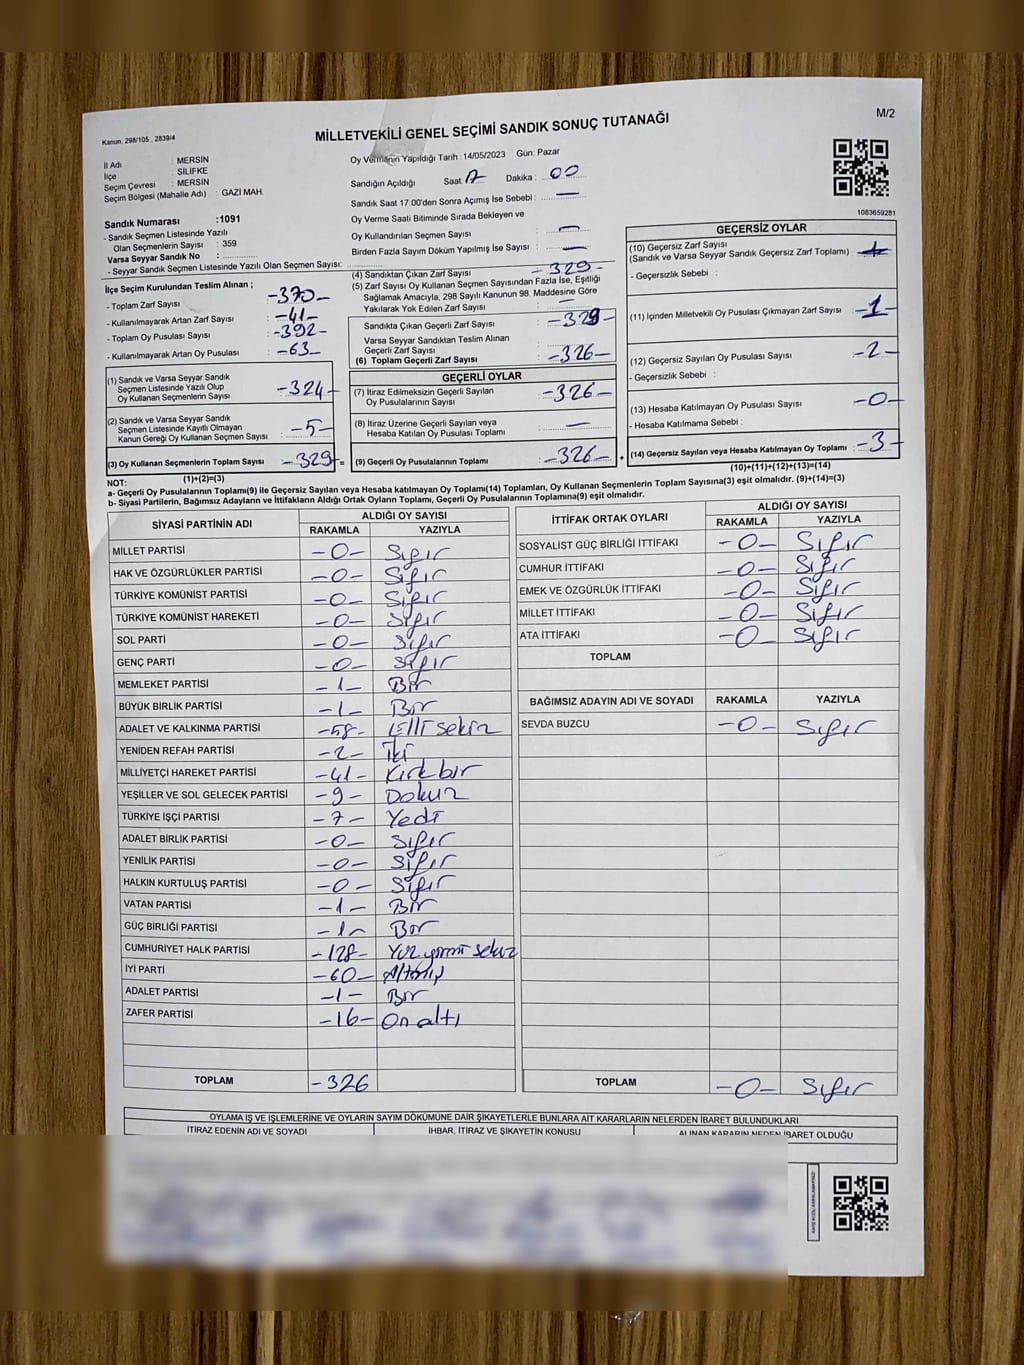 Kanun: 298/105 , 2839/4
MİLLETVEKİLİ GENEL SEÇİMİ SANDIK SONUÇ TUTANAĞI
M/2
İl Adı : MERSİN
İlçe : SİLİFKE
Seçim Çevresi : MERSİN
Seçim Bölgesi (Mahalle Adı) : GAZİ MAH.
Oy Vermenin Yapıldığı Tarih : 14/05/2023 Gün: Pazar
Sandığın Açıldığı Saat: 17 Dakika : 00
Sandık Saat 17:00'den Sonra Açımış İse Sebebi : —
Oy Verme Saati Bitiminde Sırada Bekleyen ve
Oy Kullandırılan Seçmen Sayısı : —
Birden Fazla Sayım Döküm Yapılmış İse Sayısı : —
1083659281
Sandık Numarası :1091
- Sandık Seçmen Listesinde Yazılı
Olan Seçmenlerin Sayısı : 359
Varsa Seyyar Sandık No :
- Seyyar Sandık Seçmen Listesinde Yazılı Olan Seçmen Sayısı:
İlçe Seçim Kurulundan Teslim Alınan ;
- Toplam Zarf Sayısı : -370-
- Kullanılmayarak Artan Zarf Sayısı : -41-
- Toplam Oy Pusulası Sayısı : -392-
- Kullanılmayarak Artan Oy Pusulası : -63-
(1) Sandık ve Varsa Seyyar Sandık
Seçmen Listesinde Yazılı Olup
Oy Kullanan Seçmenlerin Sayısı : -324-
(2) Sandık ve Varsa Seyyar Sandık
Seçmen Listesinde Kayıtlı Olmayan
Kanun Gereği Oy Kullanan Seçmen Sayısı : -5-
(3) Oy Kullanan Seçmenlerin Toplam Sayısı : -329-
(1)+(2)=(3)
(4) Sandıktan Çıkan Zarf Sayısı : -329-
(5) Zarf Sayısı Oy Kullanan Seçmen Sayısından Fazla İse, Eşitliği
Sağlamak Amacıyla, 298 Sayılı Kanunun 98. Maddesine Göre
Yakılarak Yok Edilen Zarf Sayısı : —
Sandıkta Çıkan Geçerli Zarf Sayısı : -329-
Varsa Seyyar Sandıktan Teslim Alınan
Geçerli Zarf Sayısı :
(6) Toplam Geçerli Zarf Sayısı : -326-
GEÇERLİ OYLAR
(7) İtiraz Edilmeksizin Geçerli Sayılan
Oy Pusulalarının Sayısı : -326-
(8) İtiraz Üzerine Geçerli Sayılan veya
Hesaba Katılan Oy Pusulası Toplamı : —
= (9) Geçerli Oy Pusulalarının Toplamı : -326- +
GEÇERSİZ OYLAR
(10) Geçersiz Zarf Sayısı
(Sandık ve Varsa Seyyar Sandık Geçersiz Zarf Toplamı) :
- Geçersizlik Sebebi :
(11) İçinden Milletvekili Oy Pusulası Çıkmayan Zarf Sayısı : -1-
(12) Geçersiz Sayılan Oy Pusulası Sayısı : -2-
- Geçersizlik Sebebi :
(13) Hesaba Katılmayan Oy Pusulası Sayısı : -0-
- Hesaba Katılmama Sebebi :
(14) Geçersiz Sayılan veya Hesaba Katılmayan Oy Toplamı : -3-
(10)+(11)+(12)+(13)=(14)
NOT:
a- Geçerli Oy Pusulalarının Toplamı(9) ile Geçersiz Sayılan veya Hesaba katılmayan Oy Toplamı(14) Toplamları, Oy Kullanan Seçmenlerin Toplam Sayısına(3) eşit olmalıdır. (9)+(14)=(3)
b- Siyasi Partilerin, Bağımsız Adayların ve İttifakların Aldığı Ortak Oyların Toplamı, Geçerli Oy Pusulalarının Toplamına(9) eşit olmalıdır.
SİYASİ PARTİNİN ADI ALDIĞI OY SAYISI
RAKAMLA YAZIYLA
MİLLET PARTİSİ -0- Sıfır
HAK VE ÖZGÜRLÜKLER PARTİSİ -0- Sıfır
TÜRKİYE KOMÜNİST PARTİSİ -0- Sıfır
TÜRKİYE KOMÜNİST HAREKETİ -0- Sıfır
SOL PARTİ -0- Sıfır
GENÇ PARTİ -0- Sıfır
MEMLEKET PARTİSİ -1- Bir
BÜYÜK BİRLİK PARTİSİ -1- Bir
ADALET VE KALKINMA PARTİSİ -58- Elli sekiz
YENİDEN REFAH PARTİSİ -2- İki
MİLLİYETÇİ HAREKET PARTİSİ -41- Kırk bir
YEŞİLLER VE SOL GELECEK PARTİSİ -9- Dokuz
TÜRKİYE İŞÇİ PARTİSİ -7- Yedi
ADALET BİRLİK PARTİSİ -0- Sıfır
YENİLİK PARTİSİ -0- Sıfır
HALKIN KURTULUŞ PARTİSİ -0- Sıfır
VATAN PARTİSİ -1- Bir
GÜÇ BİRLİĞİ PARTİSİ -1- Bir
CUMHURİYET HALK PARTİSİ -128- Yüz yirmi sekiz
İYİ PARTİ -60- Altmış
ADALET PARTİSİ -1- Bir
ZAFER PARTİSİ -16- On altı
TOPLAM -326
İTTİFAK ORTAK OYLARI ALDIĞI OY SAYISI
RAKAMLA YAZIYLA
SOSYALİST GÜÇ BİRLİĞİ İTTİFAKI -0- Sıfır
CUMHUR İTTİFAKI -0- Sıfır
EMEK VE ÖZGÜRLÜK İTTİFAKI -0- Sıfır
MİLLET İTTİFAKI -0- Sıfır
ATA İTTİFAKI -0- Sıfır
TOPLAM
BAĞIMSIZ ADAYIN ADI VE SOYADI RAKAMLA YAZIYLA
SEVDA BUZCU -0- Sıfır
TOPLAM -0- Sıfır
OYLAMA İŞ VE İŞLEMLERİNE VE OYLARIN SAYIM DÖKÜMÜNE DAİR ŞİKAYETLERLE BUNLARA AİT KARARLARIN NELERDEN İBARET BULUNDUKLARI
İTİRAZ EDENİN ADI VE SOYADI İHBAR, İTİRAZ VE ŞİKAYETİN KONUSU ALINAN KARARIN NEDEN İBARET OLDUĞU